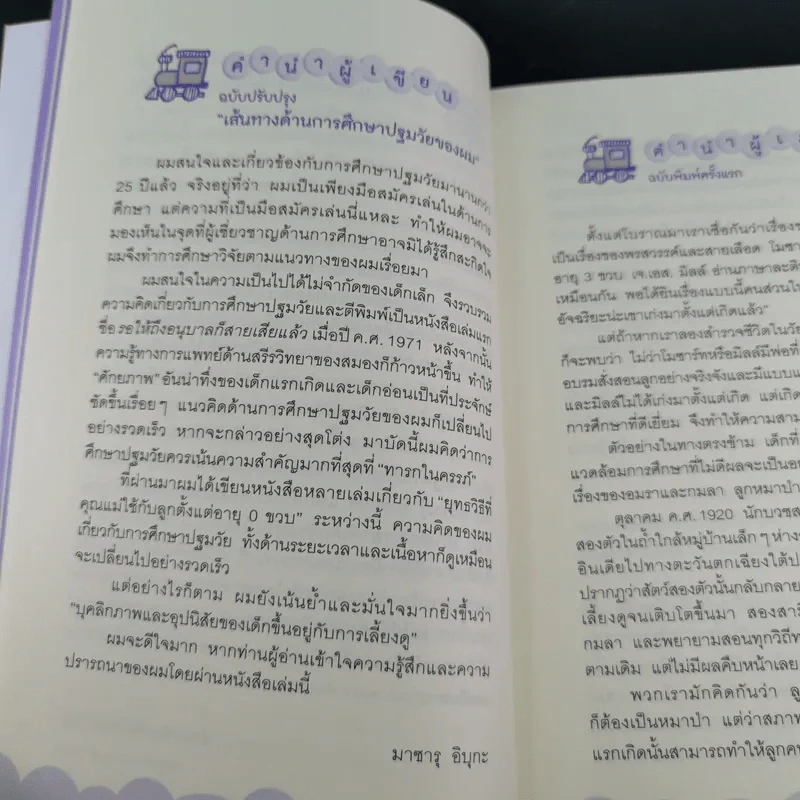 คำนำผู้เขียน
ฉบับปรับปรุง
"เส้นทางด้านการศึกษาปฐมวัยของผม"
ผมสนใจและเกี่ยวข้องกับการศึกษาปฐมวัยมานานกว่า
25 ปีแล้ว จริงอยู่ที่ว่า ผมเป็นเพียงมือสมัครเล่นในด้านการ
ศึกษา แต่ความที่เป็นมือสมัครเล่นนี่แหละ ทำให้ผมอาจจะ
มองเห็นในจุดที่ผู้เชี่ยวชาญด้านการศึกษาอาจมิได้รู้สึกสะกิดใจ
ผมจึงทำการศึกษาวิจัยตามแนวทางของผมเรื่อยมา
ผมสนใจในความเป็นไปได้ไม่จำกัดของเด็กเล็ก จึงรวบรวม
ความคิดเกี่ยวกับการศึกษาปฐมวัยและตีพิมพ์เป็นหนังสือเล่มแรก
ชื่อ รอให้ถึงอนุบาลก็สายเสียแล้ว เมื่อปี ค.ศ. 1971 หลังจากนั้น
ความรู้ทางการแพทย์ด้านสรีรวิทยาของสมองก็ก้าวหน้าขึ้น ทำให้
"ศักยภาพ" อันน่าทึ่งของเด็กแรกเกิดและเด็กอ่อนเป็นที่ประจักษ์
ชัดขึ้นเรื่อยๆ แนวคิดด้านการศึกษาปฐมวัยของผมก็เปลี่ยนไป
อย่างรวดเร็ว หากจะกล่าวอย่างสุดโต่ง มาบัดนี้ผมคิดว่าการ
ศึกษาปฐมวัยควรเน้นความสำคัญมากที่สุดที่ "ทารกในครรภ์"
ที่ผ่านมาผมได้เขียนหนังสือหลายเล่มเกี่ยวกับ "ยุทธวิธีที่
คุณแม่ใช้กับลูกตั้งแต่อายุ 0 ขวบ" ระหว่างนี้ ความคิดของผม
เกี่ยวกับการศึกษาปฐมวัย ทั้งด้านระยะเวลาและเนื้อหาก็ดูเหมือน
จะเปลี่ยนไปอย่างรวดเร็ว
แต่อย่างไรก็ตาม ผมยังเน้นย้ำและมั่นใจมากยิ่งขึ้นว่า
"บุคลิกภาพและอุปนิสัยของเด็กขึ้นอยู่กับการเลี้ยงดู"
ผมจะดีใจมาก หากท่านผู้อ่านเข้าใจความรู้สึกและความ
ปรารถนาของผมโดยผ่านหนังสือเล่มนี้
มาซารุ อิบุกะ
คำนำผู้เ
ฉบับพิมพ์ครั้งแรก
ตั้งแต่โบราณมาเราเชื่อกันว่าเรื่อง
เป็นเรื่องของพรสวรรค์และสายเลือด
อายุ 3 ขวบ เจ.เอส. มิลล์ อ่านภาษาละติ
เหมือนกัน พอได้ยินเรื่องแบบนี้คนส่วนให
อัจฉริยะน่ะเขาเก่งมาตั้งแต่เกิดแล้ว"
แต่ถ้าหากเราลองสำรวจชีวิตในวัย
ก็จะพบว่า ไม่ว่าโมซาร์ทหรือมิลล์มีพ่อที่
อบรมสั่งสอนลูกอย่างจริงจังและมีแบบแ
และมิลล์ไม่ได้เก่งมาตั้งแต่เกิด แต่เกิด
การศึกษาที่ดีเยี่ยม จึงทำให้ความสาม
ตัวอย่างในทางตรงข้าม เด็กที่
แวดล้อมการศึกษาที่ไม่ดีผลจะเป็นอย
เรื่องของอมราและกมลา ลูกหมาป่า
ตุลาคม ค.ศ. 1920 นักบวช
สองตัวในถ้ำใกล้หมู่บ้านเล็กๆ ห่าง
อินเดียไปทางตะวันตกเฉียงใต้
ปรากฏว่าสัตว์สองตัวนั้นกลับกลาย
เลี้ยงดูจนเติบโตขึ้นมา สอง
กมลา และพยายามสอนทุกวิถีท
ตามเดิม แต่ไม่มีผลคืบหน้าเลย
พวกเรามักคิดกันว่า ลู
ก็ต้องเป็นหมาป่า แต่ว่าสภาพ
แรกเกิดนั้นสามารถทำให้ลูก